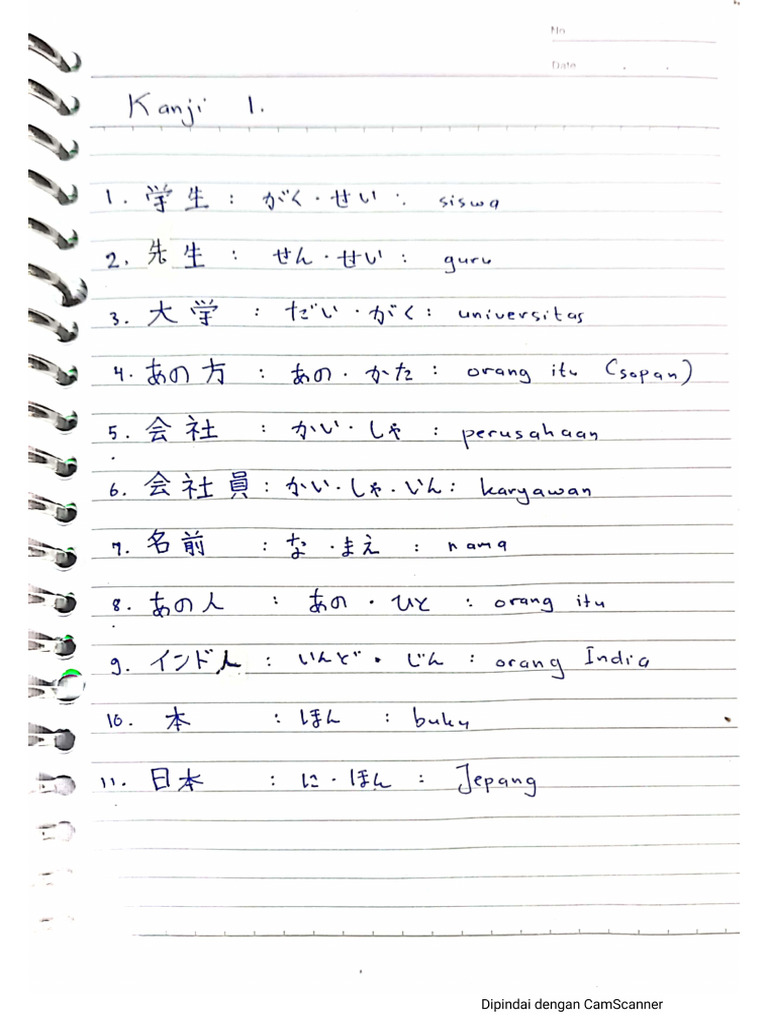 No
Date
Kanji 1.
1. 学生 : がく・せい : siswa
2. 先生 : せん・せい : guru
3. 大学 : だい・がく : universitas
4. あの方 : あの・かた : orang itu (sopan)
5. 会社 : かい・しゃ : perusahaan
6. 会社員 : かい・しゃ・いん : karyawan
7. 名前 : な・まえ : nama
8. あの人 : あの・ひと : orang itu
9. インド人 : いんど・じん : orang India
10. 本 : ほん : buku
11. 日本 : に・ほん : Jepang
Dipindai dengan CamScanner